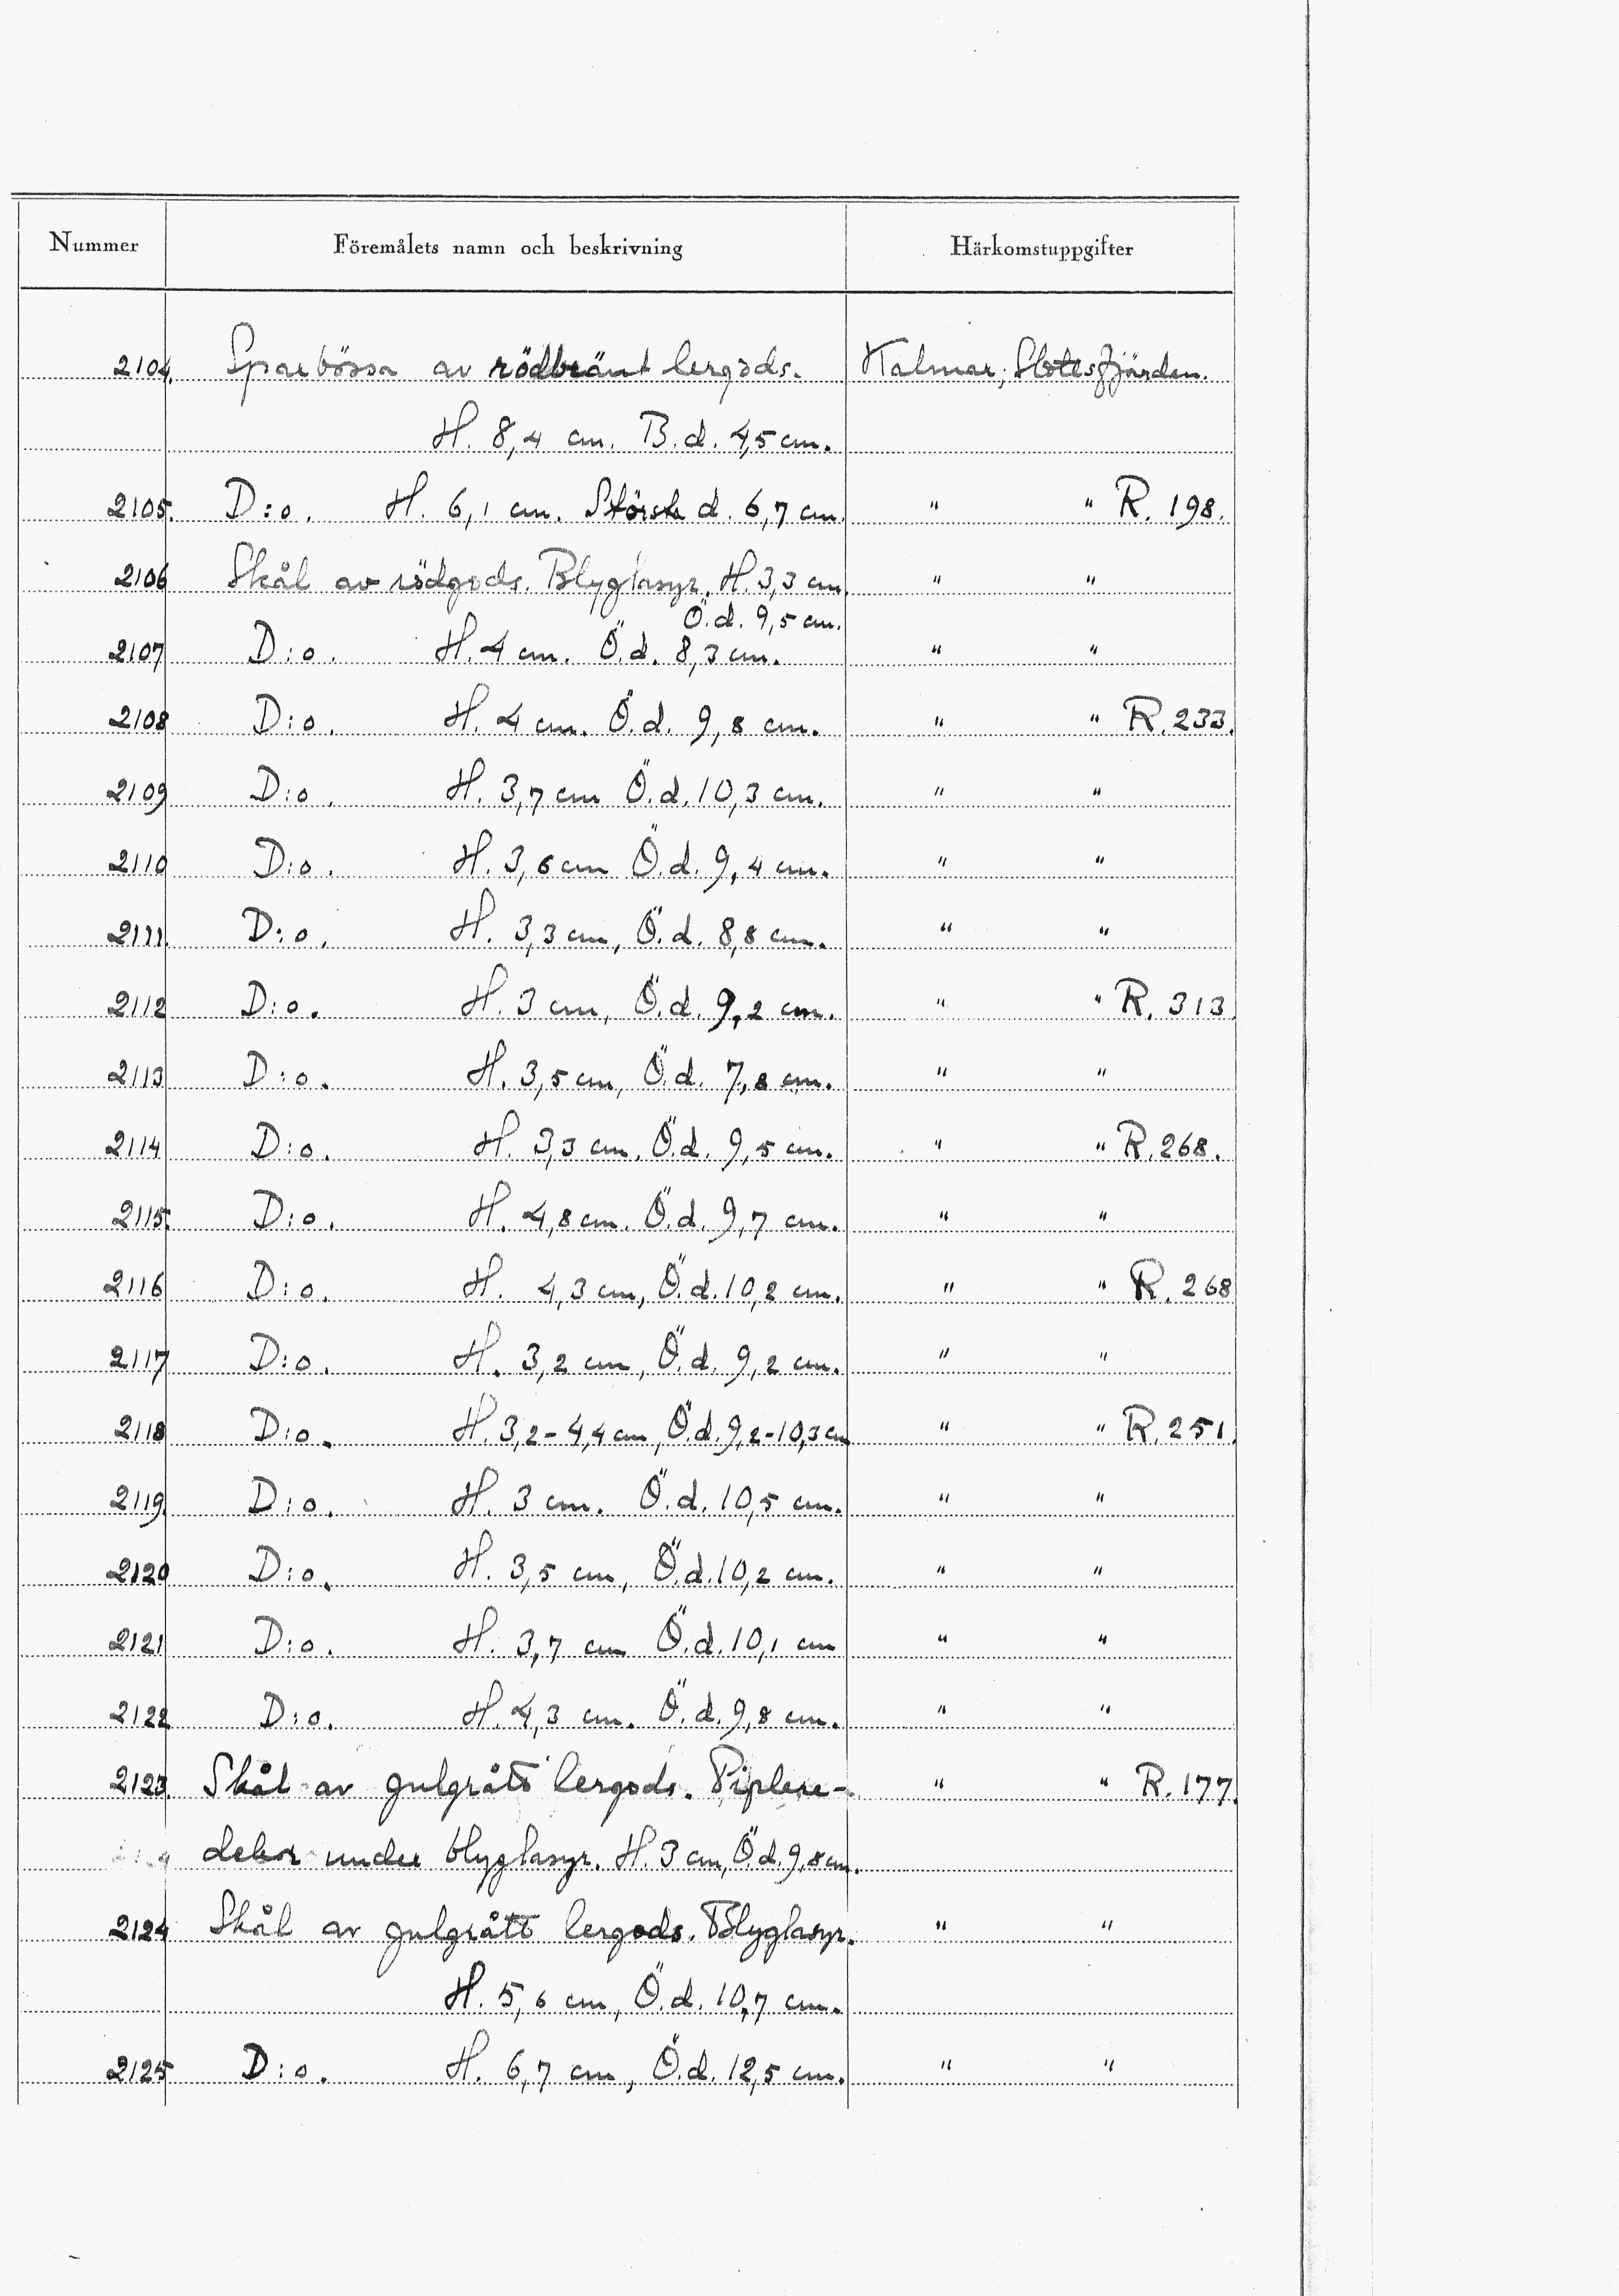 Nummer Föremålets namn och beskrivning Härkomstuppgifter
2104. Sparbössa av rödbränt lergods. Kalmar, Slottsfjärden.
H. 8,4 cm. B.d. 4,5 cm.
2105. D:o. H. 6,1 cm. Största d. 6,7 cm. " " R. 198.
2106 Skål av rödgods. Blyglasyr. H. 3,3 cm. " "
Ö.d. 9,5 cm.
2107 D:o. H. 4 cm. Ö.d. 8,3 cm. " "
2108 D:o. H. 4 cm. Ö.d. 9,8 cm. " " R. 233.
2109 D:o. H. 3,7 cm Ö.d. 10,3 cm. " "
2110 D:o. H. 3,6 cm Ö.d. 9,4 cm. " "
2111. D:o. H. 3,3 cm, Ö.d. 8,8 cm. " "
2112 D:o. H. 3 cm, Ö.d. 9,2 cm. " " R. 313.
2113 D:o. H. 3,5 cm, Ö.d. 7,8 cm. " "
2114 D:o. H. 3,3 cm. Ö.d. 9,5 cm. " " R. 268.
2115. D:o. H. 4,8 cm. Ö.d. 9,7 cm. " "
2116 D:o. H. 4,3 cm, Ö.d. 10,2 cm. " " R. 268
2117 D:o. H. 3,2 cm, Ö.d. 9,2 cm. " "
2118 D:o. H. 3,2-4,4 cm, Ö.d. 9,2-10,3 cm " " R. 251.
2119. D:o. H. 3 cm. Ö.d. 10,5 cm. " "
2120 D:o. H. 3,5 cm, Ö.d. 10,2 cm. " "
2121 D:o. H. 3,7 cm Ö.d. 10,1 cm " "
2122 D:o. H. 4,3 cm. Ö.d. 9,8 cm. " "
2123. Skål av gulgrått lergods. Piplere- " " R. 177.
dekor under blyglasyr. H. 3 cm, Ö.d. 9,8 cm.
2124 Skål av gulgrått lergods. Blyglasyr. " "
H. 5,6 cm, Ö.d. 10,7 cm.
2125 D:o. H. 6,7 cm, Ö.d. 12,5 cm. " "